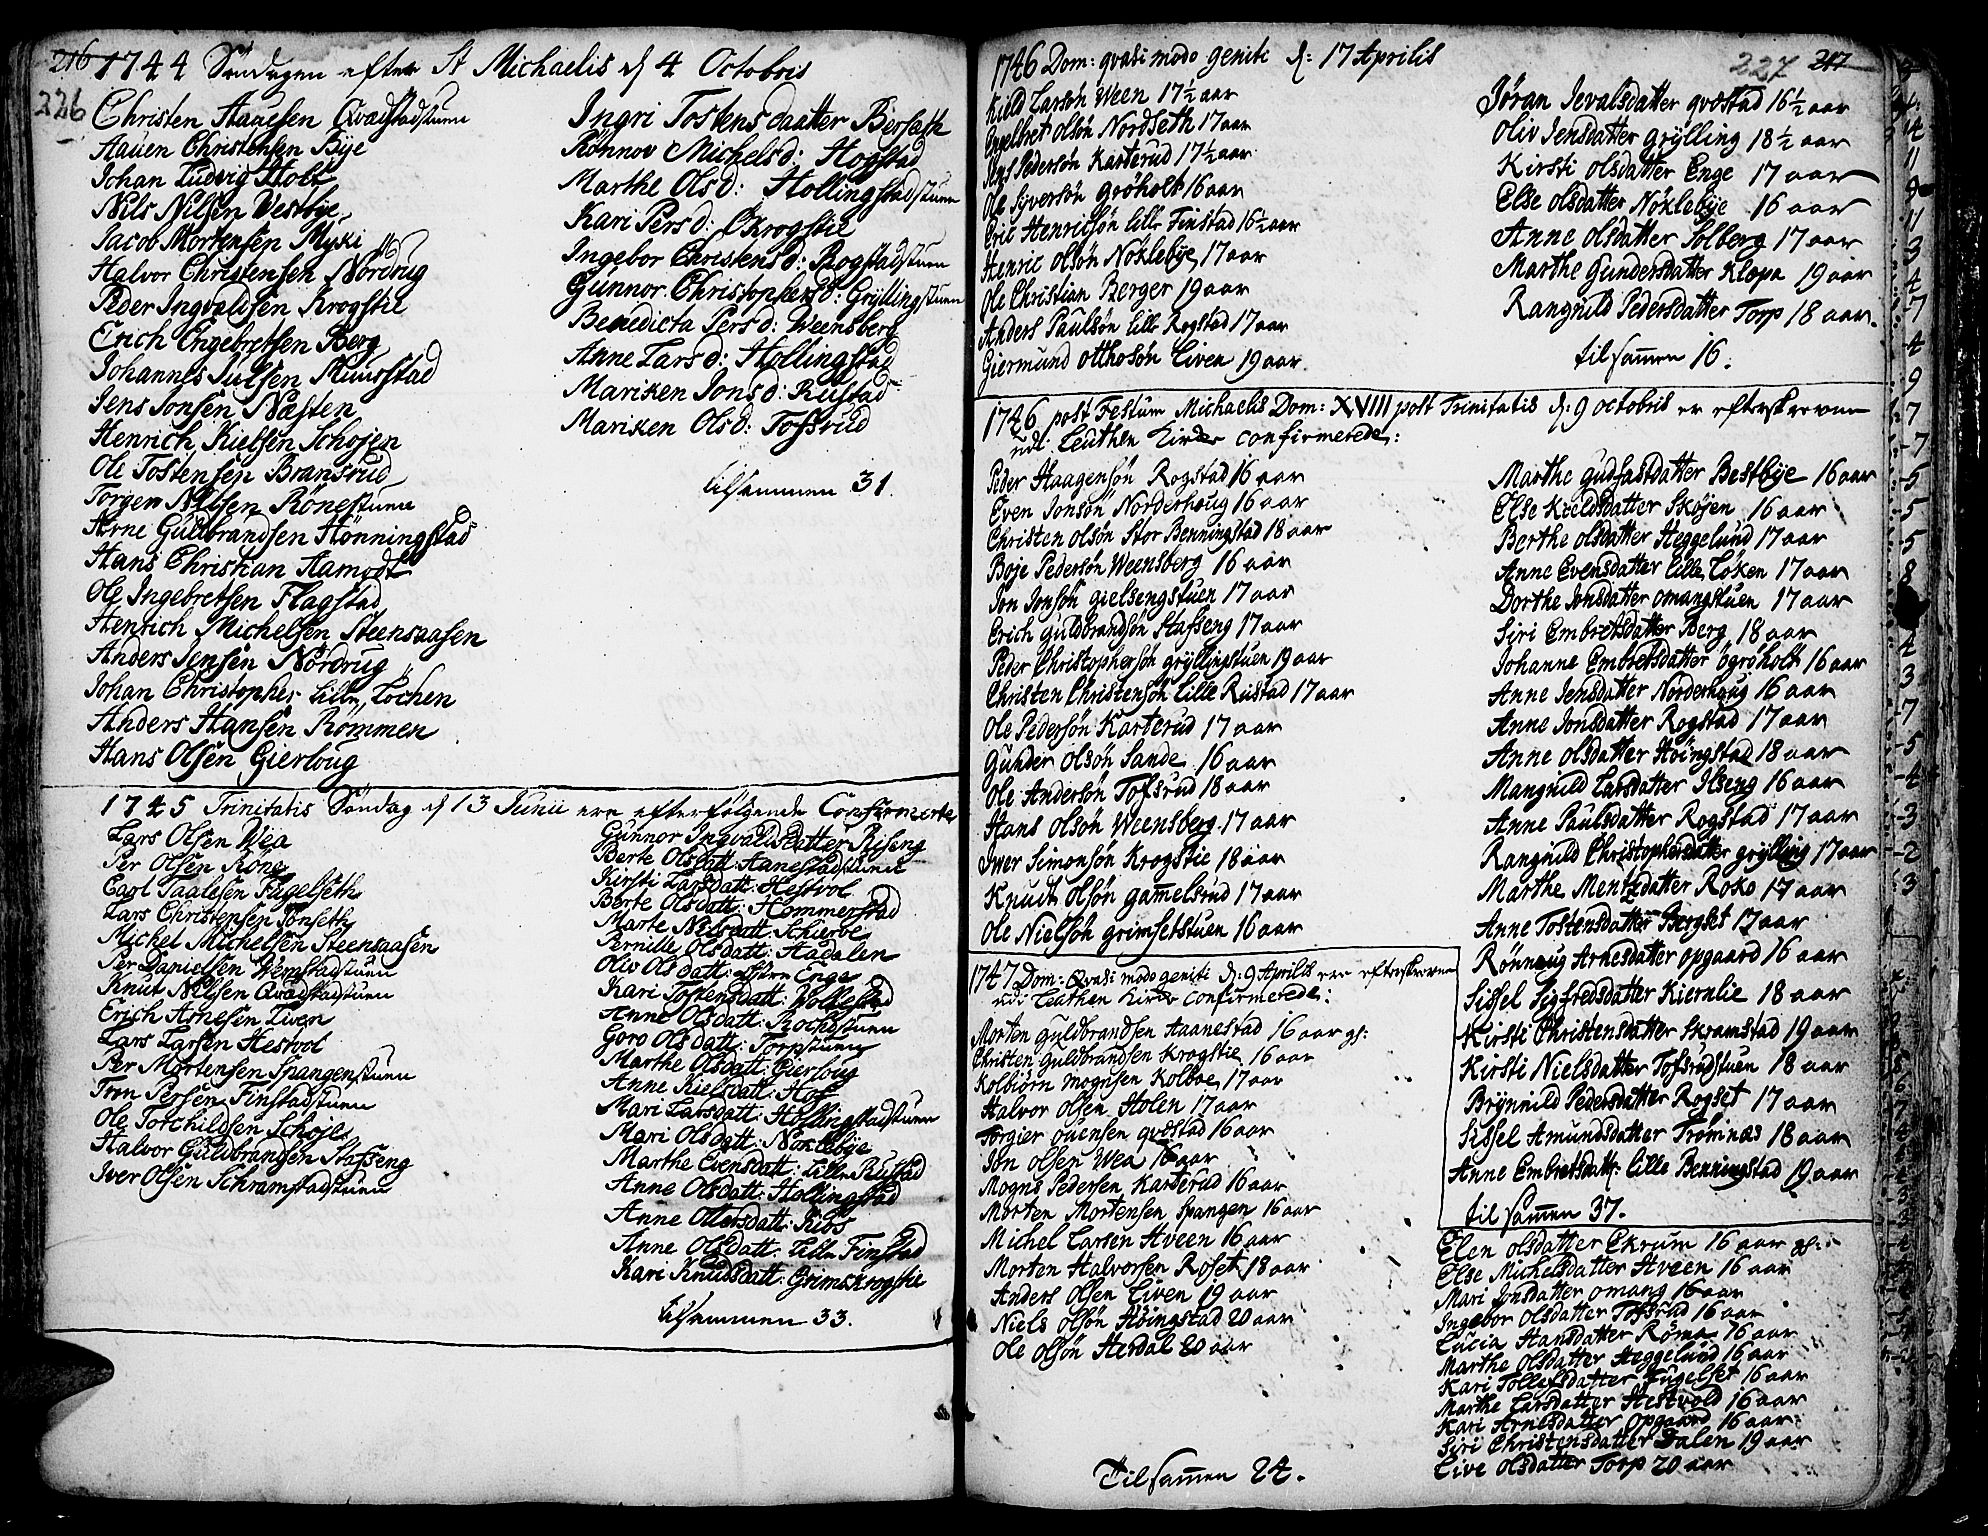 216
226
1744 Søndagen efter St Michaelis d 4 Octobris
Christen Aauesen Qvadstadstuen
Aauen Christensen Bÿe
Johan Ludvig Holt
Nils Nilsen Vestbÿe
Jacob Mortensen Myki
Halvor Christensen Nordrug
Peder Ingvaldsen Krogstie
Erich Engebretsen Berg
Johannes Julsen Muusstad
Jens Jonsen Næsten
Henrich Kielsen Schojen
Ole Tostensen Bransrud
Torgen Nilsen Rönestuen
Arne Guldbrandsen Hönningstad
Hans Christian Aamodt
Ole Ingebretsen Flagstad
Henrich Michelsen Steensaasen
Anders Jensen Nordrug
Johan Christopher Lille Löchen
Anders Hansen Rommen
Hans Olsen Gierloug
Ingri Tostens daatter Bersæth
Rönnov Michelsd: Hogstad
Marthe Olsd: Hollingstadstuen
Kari Persd: Krogstie
Ingebor Christensd: Rogstadstuen
Gunnor Christophersd: Gryllingstuen
Benedicta Persd: Weensberg
Anne Larsd: Hollingstad
Mariken Jonsd: Rustad
Mariken Olsd: Tofsrud
tilsammen 31.
1745 Trinitatis Söndag d 13 Junii ere efterfølgende Confirmerte
Lars Olsen Wea
Per Olsen Rong
Carl Paalsen Fugelseth
Lars Christensen Tonseth
Michel Michelsen Steensaasen
Per Danielsen Wemstadstuen
Knut Nilsen Qvadstadstuen
Erich Arnesen Liven
Lars Larsen Hestvol
Per Mortensen Spangenstuen
Tron Persen Finstadstuen
Ole Torchildsen Schoje
Halvor Guldbrandsen Stafseng
Iver Olsen Schramstadstuen
Gunnor Ingvaldsdatter Riseng
Berte Olsdatt: Aanestadstuen
Kirsti Larsdatt: Hestvol
Berte Olsdatt: Hommerstad
Marte Nilsdatt: Schierve
Pernille Olsdatt: Aadalen
Oliv Olsdatt: Enge
Kari Tostensdatt: Wollestad
Anne Olsdatt: Rochstuen
Goro Olsdatt: Torpstuen
Marthe Olsdatt: Gierloug
Anne Kielsdatt: Hof
Mari Larsdatt: Hollingstadstuen
Mari Olsdatt: Noklebÿe
Marthe Evensdatt: Lille Rustad
Anne Olsdatt: Hollingstad
Anne Ollersdatt: Kios
Anne Olsdatt: Lille Finstad
Kari Knudsdatt: Grimskrogstie
tilsammen 33.
227 217
1746 Dom: qvasi modo geniti d: 17 Aprilis
Kield Larsön Ween 17½ aar
Engelbret olsön Nordseth 17 aar
Jens Pedersön Karterud 17½ aar
Ole Syversön gröholt 16 aar
Eric Henricsön lille Finstad 16½ aar
Henric olsön Nöklebÿe 17 aar
Ole Christian Berger 19 aar
Anders Paulsön lille Rogstad 17 aar
Giermund otthosön Liven 19 aar.
Jöran Jevalsdatter qvæstad 16½ aar
Oliv Jensdatter grÿlling 18½ aar
Kirsti olsdatter Enge 17 aar
Else olsdatter Nöklebÿe 16 aar
Anne olsdatter Solberg 17 aar
Marthe Gundersdatter Klopa 19 aar
Rangnild Pedersdatter Torp 18 aar.
til samen 16.
1746 post Festum Michaelis Dom: XVIII post Trinitatis d: 9 octobris er efterskrevne
udi Leuthen Kirke confirmerede:
Peder Haagensön Rogstad 16 aar
Even Jonsön Norderhoug 16 aar
Christen olsön Stor Benningstad 18 aar
Boje Pedersön Weensberg 16 aar
Jon Jonsön gielsengstuen 17 aar
Erich guldbrandsön Stafseng 17 aar
Peder Christophersön gryllingstuen 19 aar
Christen Christensön Lille Rustad 17 aar
Ole Pedersön Karterud 17 aar
Gunder olsön Sande 16 aar
Ole Andersön Tofsrud 18 aar
Hans olsön Weensberg 17 aar
Iwer Simonsön Krogstie 18 aar
Knudt olsön gamelsrud 17 aar
Ole Nielsön grimsetstuen 16 aar
Marthe gudfastdatter Bestbÿe 16 aar
Else Kieldsdatter Sköjen 16 aar
Berthe olsdatter Heggelund 17 aar
Anne Evensdatter Lille Löken 17 aar
Dorthe Jonsdatter omangstuen 17 aar
Siri Embretsdatter Berg 18 aar
Johanne Embretsdatter ögröholt 16 aar
Anne Jensdatter Norderhoug 16 aar
Anne Jonsdatter Rogstad 17 aar
Anne olsdatter Höingstad 18 aar
Mangnild Larsdatter Ilseng 16 aar
Anne Paulsdatter Rogstad 17 aar
Rangnild Christophersdatter grÿlling 17 aar
Marthe Mentzdatter Roko 17 aar
Anne Tostensdatter Bergset 17 aar
Rönnaug Arnesdatter opgaard 16 aar
Sissel Sigfredsdatter Kiernlie 18 aar
Kirsti Christensdatter Skramstad 19 aar
Kirsti Nielsdatter Tofsrudstuen 18 aar
Brÿnnild Pedersdatter Rogset 17 aar
Sissel Amundsdatter Tröminas 18 aar
Anne Embretsdatt: lille Benningstad 19 aar
til samen 37.
1747 Dom: Qvasi modo geniti d: 9 Aprilis ere efterskrevne
udi Leuthen Kirke confirmerede:
Morten guldbrandsen Aanestad 16 aar gl:
Christen guldbrandsen Krogstie 16 aar
Kolbiörn Mognsen Kolboe 17 aar
Halvor olsen Holen 17 aar
Torgier ouensen qvæstad 16 aar
Jon olsen Wea 16 aar
Mogns Pedersen Karderud 16 aar
Morten Mortensen Spangen 16 aar
Michel Larsen Hveen 16 aar
Morten Halvorsen Roset 18 aar
Anders olsen Liven 19 aar
Niels olsön Höingstad 20 aar
Ole olsön Herdal 20 aar
Elen olsdatter Ekrum 16 aar gl:
Else Michelsdatter Hveen 16 aar
Mari Jonsdatter omang 16 aar
Ingebor olsdatter Tofsrud 16 aar
Lucia Hansdatter Röma 16 aar
Marthe olsdatter Heggelund 16 aar
Kari Tollefsdatter Fugelset 16 aar
Marthe Larsdatter Hestvold 16 aar
Kari Arnesdatter opgaard 16 aar
Siri Christensdatter Dalen 19 aar
Live olsdatter Torp 20 aar
Til samen 24.